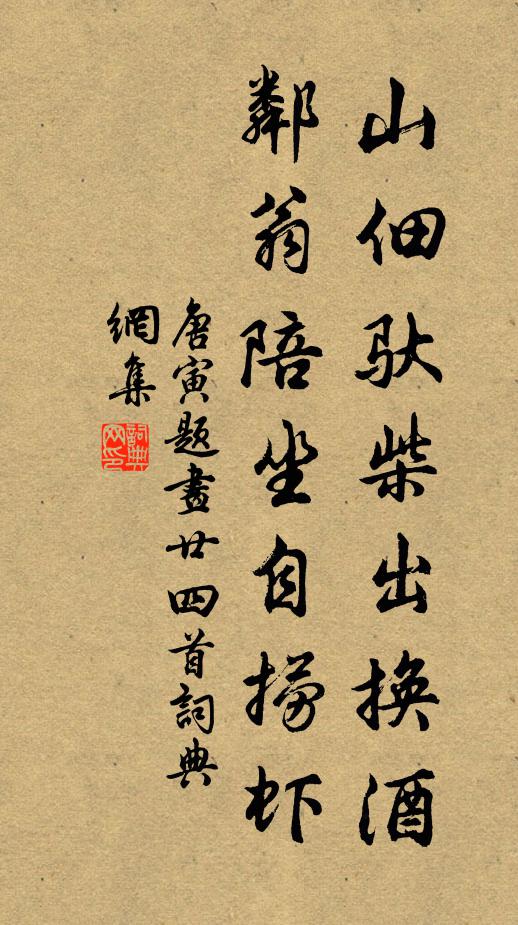 山佃馱柴出換酒
鄰翁陪坐自撈虾
唐寅題畫廿四首詞典
網集
詞典網印